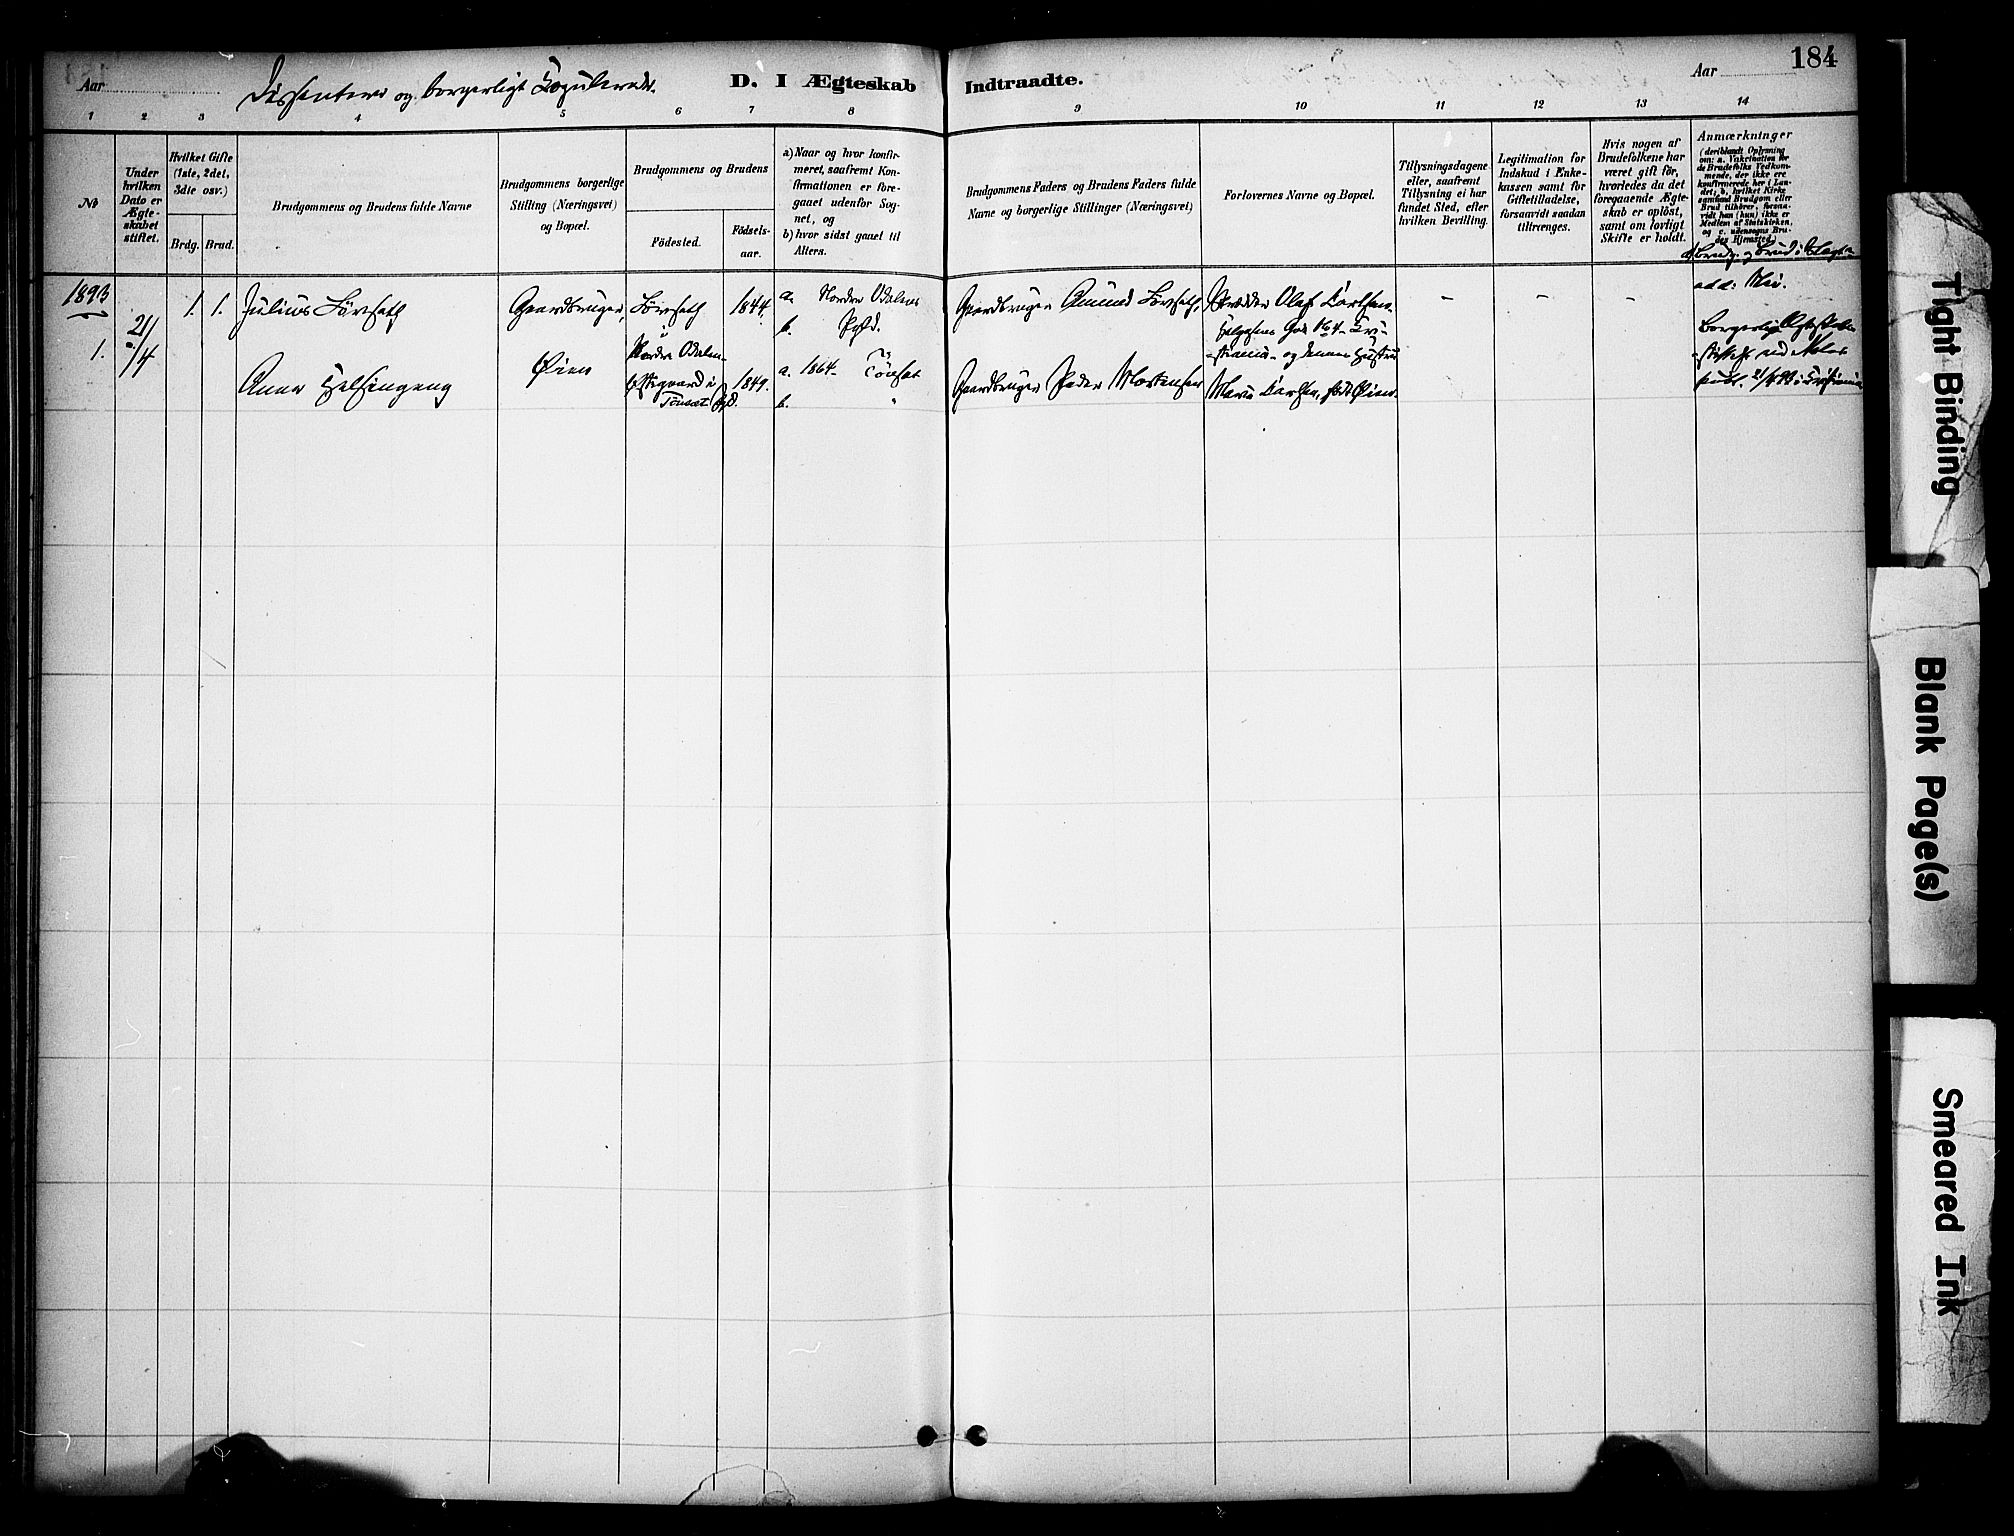 184
Aar
Dissentere og borgerligt
D. I Ægteskab Indtraadte.
Aar
1 2 3 4 5 6 7 8 9 10 11 12 13 14
No
Under
hvilken
Dato er
Ægte-
skabet
stiftet.
Hvilket Gifte
(1ste, 2det,
3die osv.)
Brdg. Brud.
Brudgommens og Brudens fulde Navne
Brudgommens borgerlige
Stilling (Næringsvei)
og Bopæl.
Brudgommens og Brudens
Födested.
Födsels-
aar.
a) Naar og hvor konfir-
meret, saafremt Kon-
firmationen er fore-
gaaet udenfor Sog-
net, og
b) hvor sidst gaaet til
Alters.
Brudgommens Faders og Brudens Faders fulde
Navne og borgerlige Stillinger (Næringsvei)
Forlovernes Navne og Bopæl.
Tillysningsdagene
eller, saafremt
Tillysning ei har
fundet Sted, efter
hvilken Bevilling.
Legitimation for
Indskud i Enke-
kassen samt for
Giftetilladelse,
forsaavidt saadan
tiltrænges.
Hvis nogen af
Brudefolkene har
været gift för,
hvorledes da det
foregaaende Ægte-
skab er oplöst,
samt om lovligt
Skifte er holdt.
Anmærkninger
(deriblandt Oplysning
om: a. Vakcination for
de Brudefolks Vedkom-
mende, der ikke ere
konfirmerede her i Lan-
det; b. hvilket Kirke
samfund Brudgom eller
Brud tilhörer, forsaa-
vidt han (hun) ikke er
Medlem af Statskirken,
og c. udensogns Bru-
des Hjemsted.)
1893
1.
21/4
1. 1.
Julius Lövseth
Gaardbruger,
Øien
Lövseth
i
Nordre Odalen
1844.
a. Nordre Odalens
b. Pgld.
Gaardbruger Amund Lövseth,
Skrædder Olaf Carlsen,
Helgesens Gade No 4 - Kri-
stiania - og dennes Hustru
Marie Carlsen, född Øien.
- - -
Anne Helsingeng
i
Tönset Pgd.
1849.
a. 1864 - Tönset
b. "
Gaardbruger Peder Mortensen
Tight Binding
Blank Page(s)
Smeared Ink